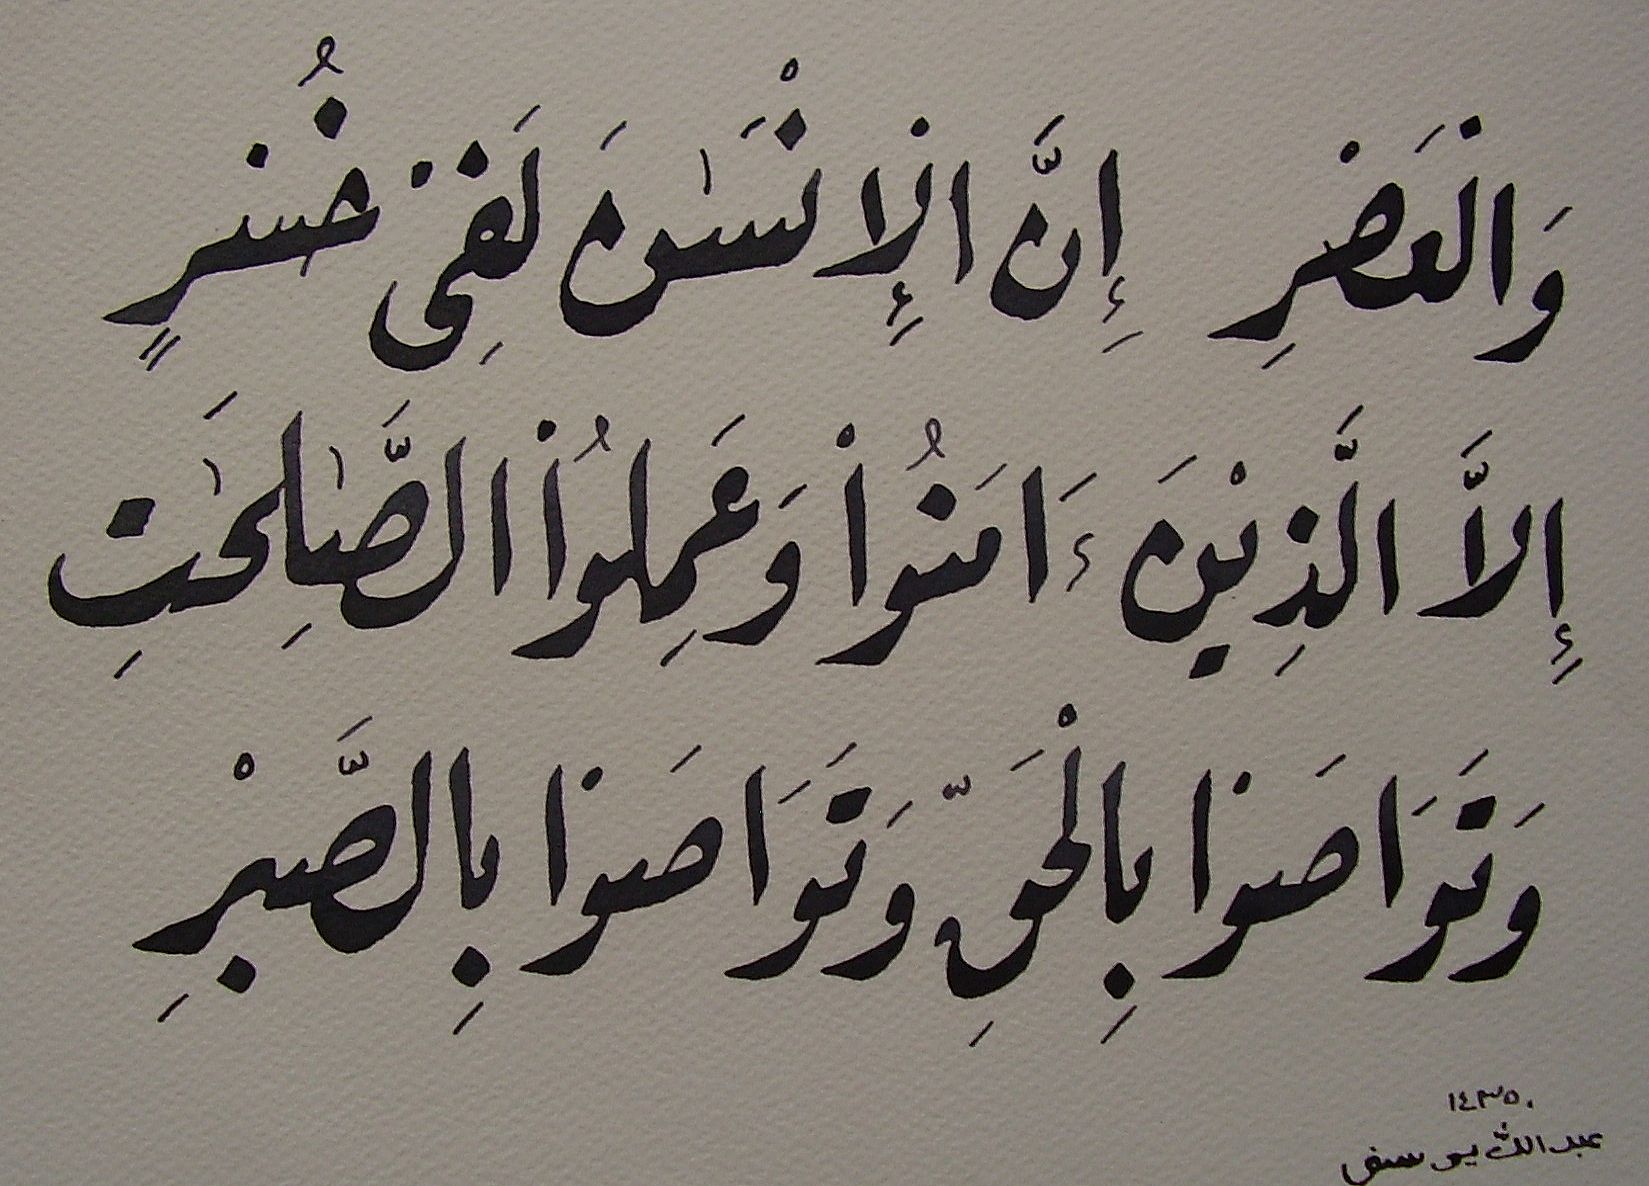 وَالْعَصْرِ إِنَّ الْإِنْسَٰنَ لَفِىْ خُسْرٍ
إِلَّا الَّذِيْنَ ءَامَنُواْ وَعَمِلُواْ الصَّٰلِحَٰتِ
وَتَوَاصَوْا بِالْحَقِّ وَتَوَاصَوْا بِالصَّبْرِ
١٤٣٥.
عبد الله يوسف